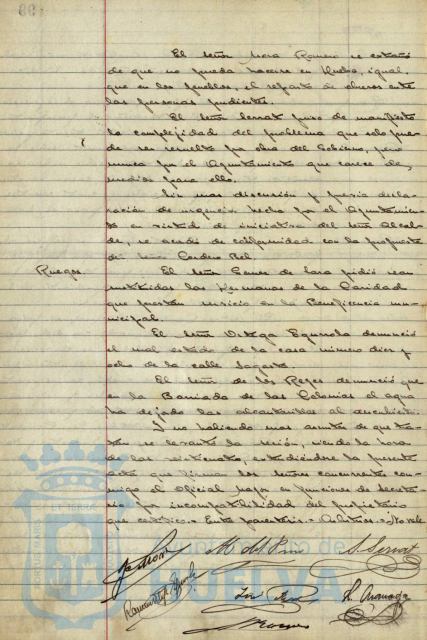 El señor Mora Romero se extrañó
de que no pueda hacerse en Huelva, igual
que en los pueblos, el reparto de obreros entre
las personas pudientes.
El señor Serrat puso de manifiesto
la complejidad del problema que solo pue-
de ser resuelto por obra del Gobierno, pero
nunca por el Ayuntamiento que carece de
medios para ello.
Sin mas discusión y previa decla-
ración de urgencia hecha por el Ayuntamien-
to en virtud de iniciativa del señor Alcal-
de, se acordó de conformidad con la propuesta
del señor Cordero Bel.
Ruegos. El señor Gomez de Lara pidió sean
sustituidas las Hermanas de la Caridad
que prestan servicio en la Beneficencia mu-
nicipal.
El señor Ortega Equerola denunció
el mal estado de la casa número diez y
ocho de la calle Sagasta.
El señor de los Reyes denunció que
en la Barriada de las Colonias el agua
ha dejado las alcantarillas al descubierto.
Y no habiendo mas asuntos de que tra-
tar se levantó la sesión, siendo la hora
de las veinticuatro, extendiéndose la presente
acta que firman los señores concurrentes con-
migo el Oficial mayor en funciones de secreta-
rio por incompatibilidad del propietario
que certifico.= Entre paréntesis = No vale
HUELVA